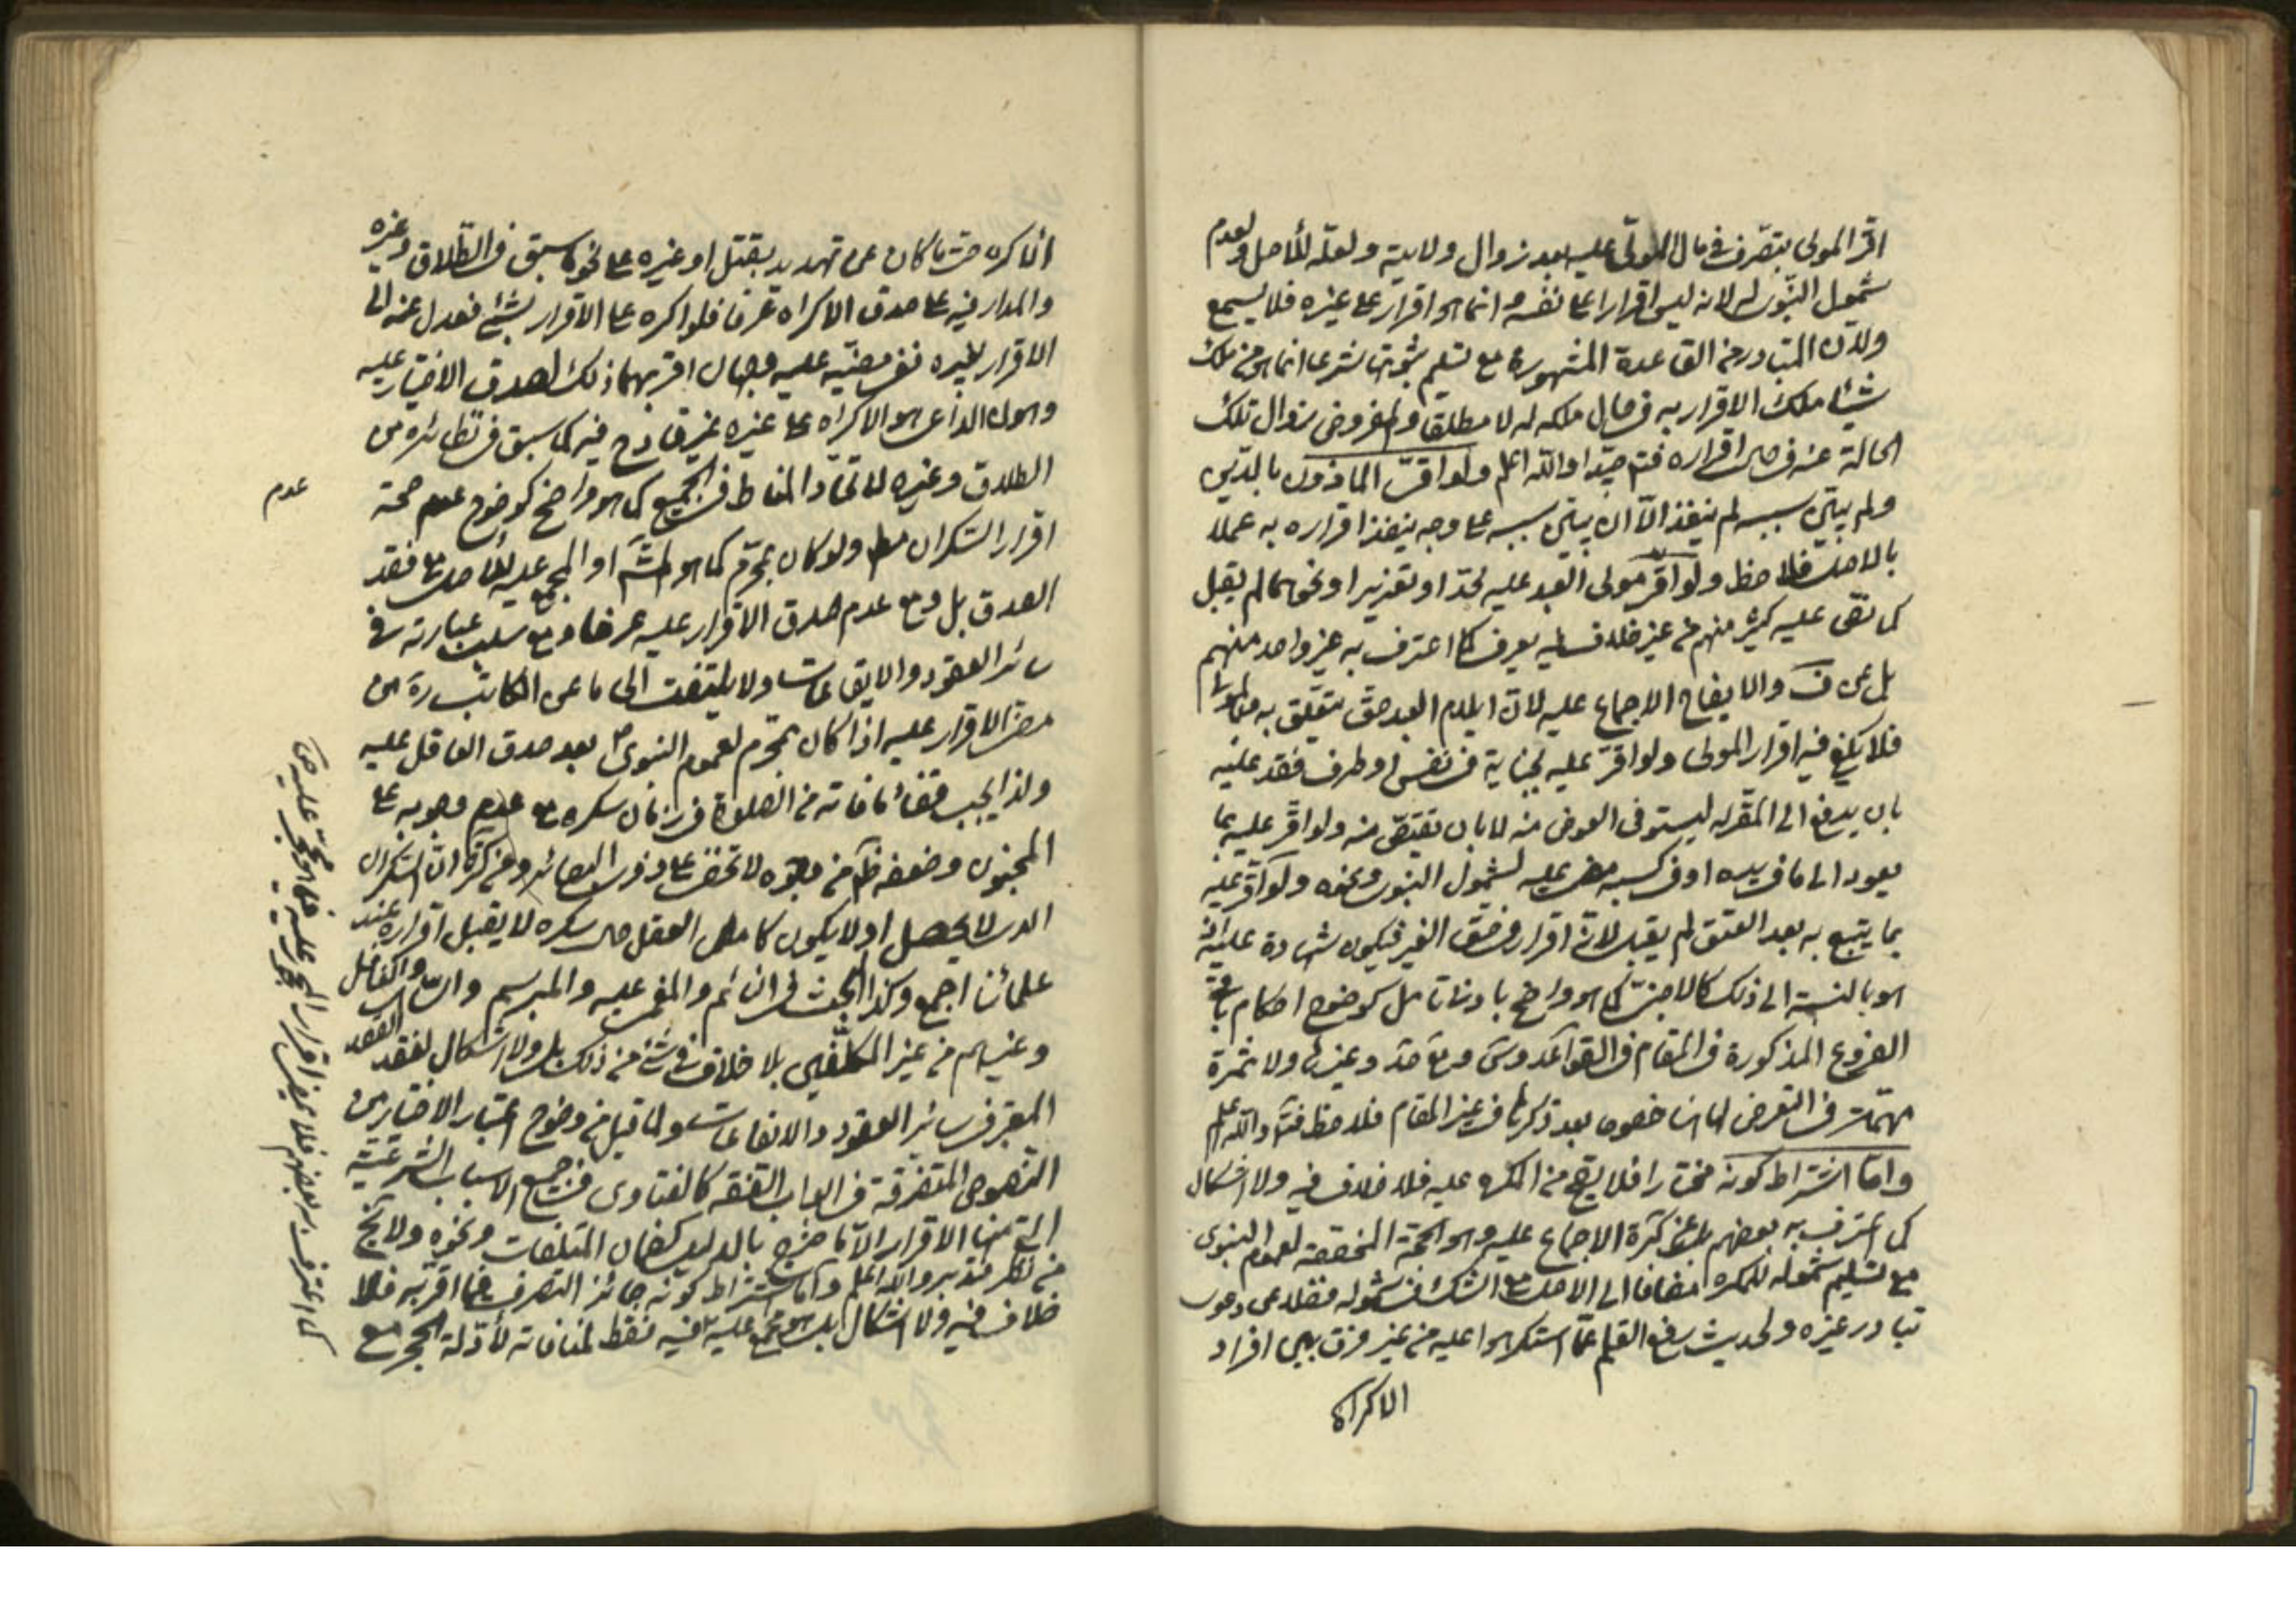 اقر المولى بتصرف في مال المولّى عليه بعد زوال ولايته ولعله للأصل ولعدم
شمول النبوي له لانه ليس اقرارا على نفسه انما هو اقرار على غيره فلا يسمع
ولان المتبادر من القاعدة المشهورة مع تسليم ثبوتها شرعا انما هو من ملك
شيئا ملك الاقرار به في حال ملكه له لا مطلقا والمفروض زوال تلك
الحالة عنه في حال اقراره فتأمل جيدا والله اعلم ولو اقر المأذون بالدين
ولم يبين سببه لم ينفذ الا ان يبين سببه على وجه ينفذ اقراره به عملا
بالاصل فلاحظ ولو اقر مولى العبد عليه بحد او تعزير او نحوهما لم يقبل
كما نص عليه كثير منهم من غير خلاف فيه يعرف كما اعترف به غير واحد منهم
بل عن ف والايضاح الاجماع عليه لان ايلام العبد حق متعلق به
فلا يكفي فيه اقرار المولى ولو اقر عليه بجناية في نفس او طرف نفذ عليه
بان يدفع الى المقر له ليستوفى العوض منه لا بان يقتص منه ولو اقر عليه بما
يعود الى ما في يده او في كسبه مضى عليه لشمول النبوي ونحوه ولو اقر عليه
بما يتبع به بعد العتق لم يقبل لانه اقرار في حق الغير فيكون شهادة عليه اذ
هو بالنسبة الى ذلك كالاجنبي كما هو واضح بادنى تأمل كوضوح احكام باقي
الفروع المذكورة في المقام في القواعد وغيرها ولا ثمرة
مهمة في التعرض لها هنا خصوصا بعد ذكرها في غير المقام فلاحظ والله اعلم
واما اشتراط كونه مختارا فلا يصح من المكره عليه فلا خلاف فيه ولا اشكال
كما اعترف به بعضهم بل عن كرة الاجماع عليه وهو الحجة المخصصة لعموم النبوي
مع تسليم شموله للمكره مضافا الى الاصل مع الشك في شموله فضلا عن دعوى
تبادر غيره ولحديث رفع القلم عما استكرهوا عليه من غير فرق بين افراد
الاكراه
الاكره حتى ما كان عن تهديد بقتل او غيره على نحو ما سبق في الطلاق وغيره
والمدار فيه على صدق الاكراه عرفا فلو اكره على الاقرار بشئ فعدل عنه الى
الاقرار بغيره نفذ مضيه عليه وحال اقر بهما ذلك لصدق الاختيار عليه
وكون الداعي هو الاكراه على غيره غير قادح فيه كما سبق في نظائره من
الطلاق وغيره لاتحاد المناط في الجميع كما هو واضح كوضوح عدم صحة
عدم
اقرار السكران مط ولو كان بمحرم كما هو المش او المجمع عليه للاصل مع فقد
الصدق بل ومع عدم صدق الاقرار عليه عرفا ومع سلب عبارته في
سائر العقود والايقاعات ولا يلتفت الى ما عن الكاتب ره من
مضى الاقرار عليه اذا كان بمحرم لعموم النبوي بعد صدق العاقل عليه
ولذا يجب قضاء ما فاته من الصلوة في زمان سكره مع عدم وجوبه على
المجنون وضعفه ظاهر من وجوه لا تخفى على ذوي البصائر وعن كرة ان السكران
الذي لا يحصل او لا يكون كامل العقل حال سكره لا يقبل اقراره عند
علمائنا اجمع وكذا البحث في النائم والمغمى عليه والمبرسم والساهي والغافل
وغيرهم من غير المكلفين بلا خلاف في شئ من ذلك بل ولا اشكال لفقد القصد
المعتبر في سائر العقود والايقاعات ولما قيل من وضوح اعتبار الاختيار من
النصوص المتفرقة في ابواب الفقه كالفتاوى في جميع الاسباب الشرعية
التي منها الاقرار الا ما خرج بالدليل كضمان المتلفات ونحوه ولا يخ
من نظر فتدبر والله اعلم واما اشتراط كونه جائز التصرف فيما اقر به فلا
خلاف فيه ولا اشكال بل هو مجمع عليه فيه نقط لمنافاته لأدلة الحجر مع